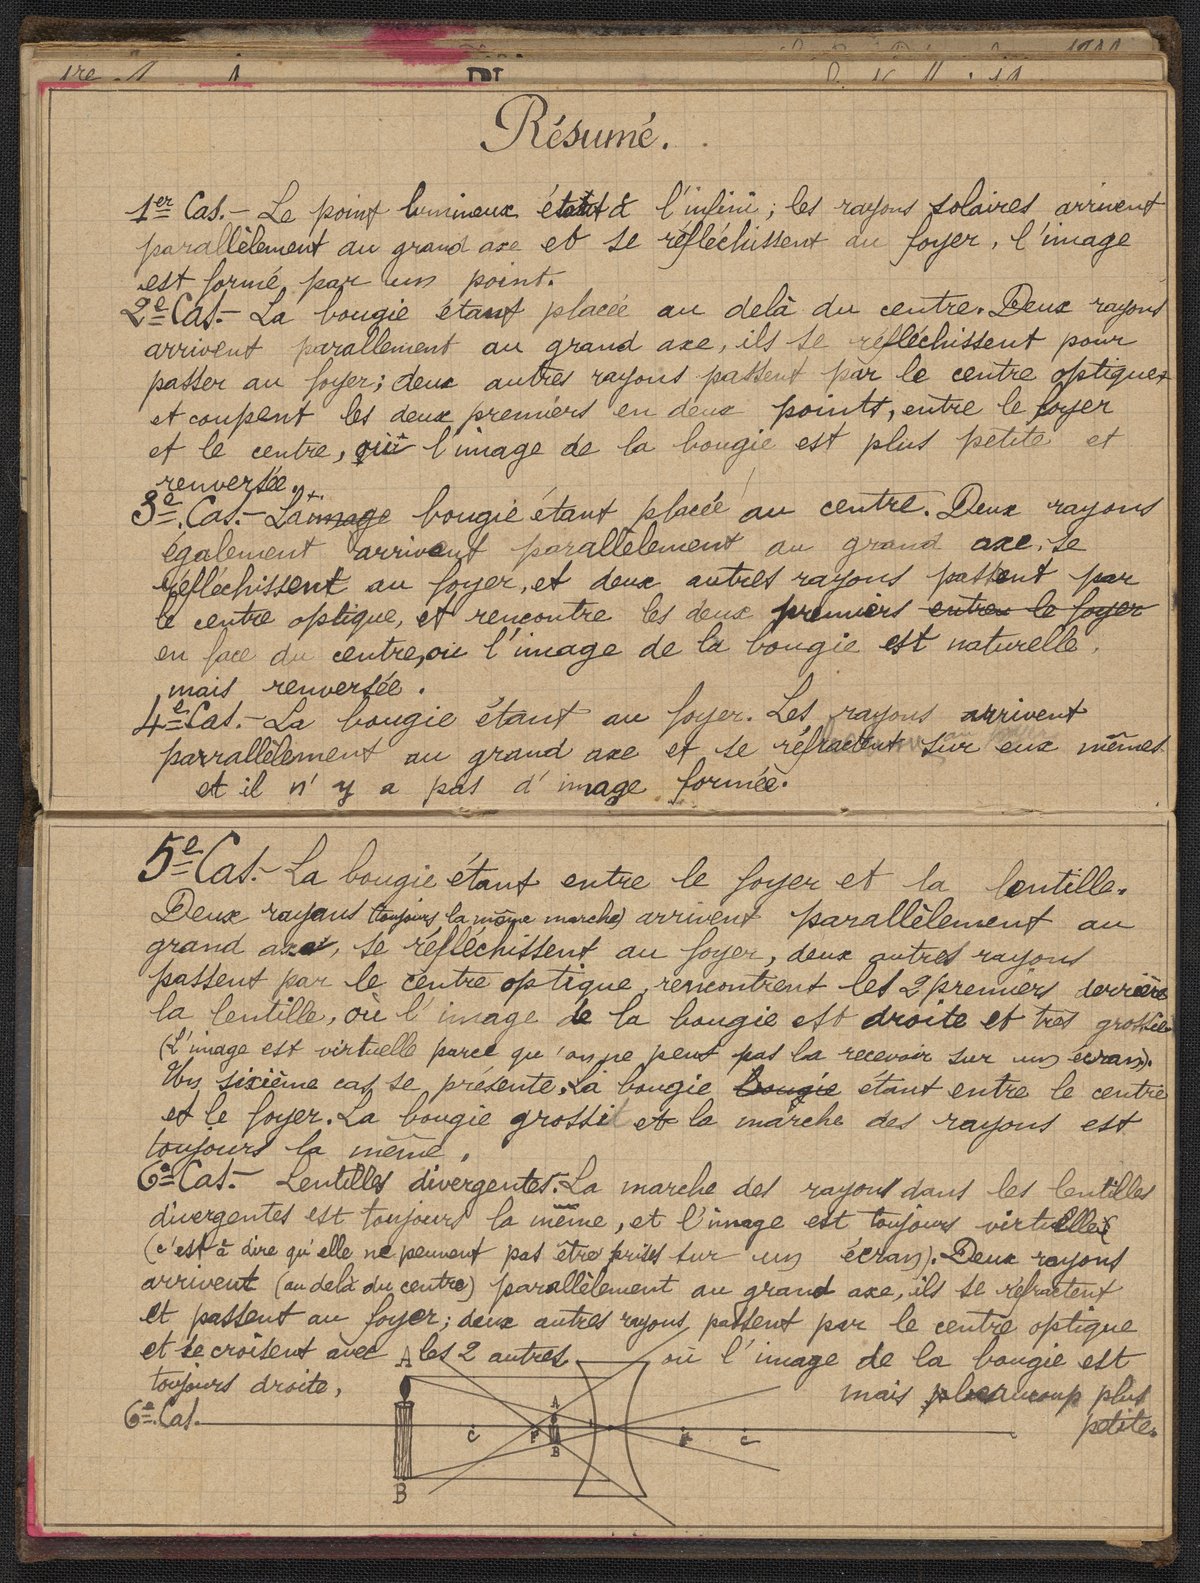 Résumé.
1er Cas.- Le point lumineux étant à l'infini; les rayons solaires arrivent
parallèlement au grand axe et se réfléchissent au foyer, l'image
est formé par un point.
2e Cas.- La bougie étant placée au delà du centre. Deux rayons
arrivent parallement au grand axe, ils se réfléchissent pour
passer au foyer; deux autres rayons passent par le centre optique
et coupent les deux premiers en deux points, entre le foyer
et le centre, où l'image de la bougie est plus petite et
renversée.
3e Cas.- La image bougie étant placée au centre. Deux rayons
également arrivent parallèlement au grand axe, se
réfléchissent au foyer, et deux autres rayons passent par
le centre optique, et rencontre les deux premiers entre le foyer
en face du centre, où l'image de la bougie est naturelle,
mais renversée.
4e Cas.- La bougie étant au foyer. Les rayons arrivent
parrallèlement au grand axe et se réfractent sur eux mêmes
et il n'y a pas d'image formée.
5e Cas.- La bougie étant entre le foyer et la lentille.
Deux rayons (toujours la même marche) arrivent parallèlement au
grand axe, se réfléchissent au foyer, deux autres rayons
passent par le centre optique, rencontrent les 2 premiers derrière
la lentille, où l'image de la bougie est droite et très grossie
(L'image est virtuelle parce qu'on ne peut pas la recevoir sur un écran).
Un sixième cas se présente. La bougie bougie étant entre le centre
et le foyer. La bougie grossit et la marche des rayons est
toujours la même.
6e Cas.- Lentilles divergentes.- La marche des rayons dans les lentilles
divergentes est toujours la même, et l'image est toujours virtuelle
(c'est à dire qu'elle ne peuvent pas être prises sur un écran). Deux rayons
arrivent (au delà du centre) parallèlement au grand axe, ils se réfractent
et passent au foyer; deux autres rayons passent par le centre optique
et se croisent avec les 2 autres où l'image de la bougie est
toujours droite, mais beaucoup plus
petite.
6e Cas.
A
A
C
F
B
F
C
B